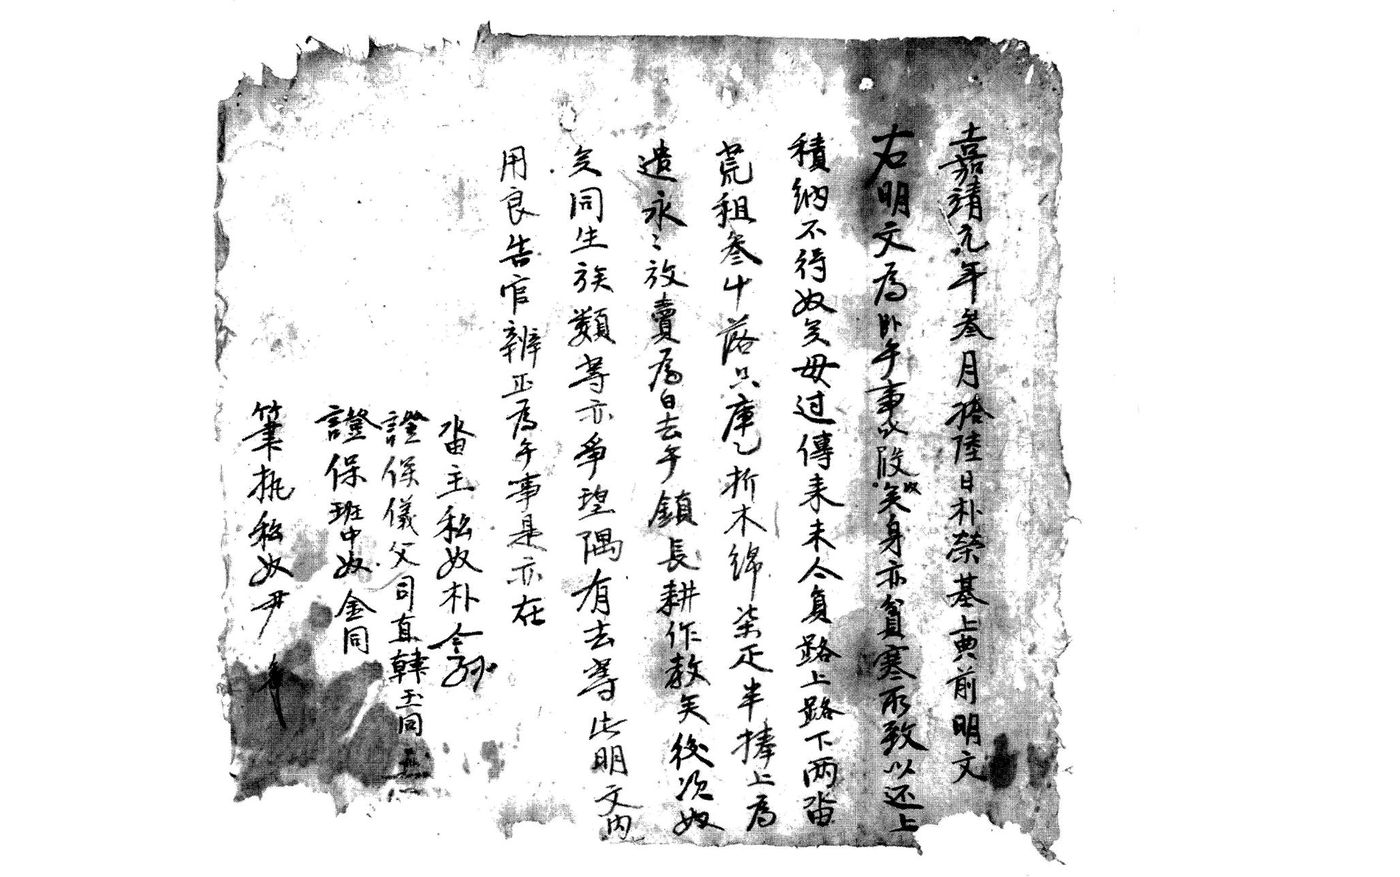 嘉靖元年叄月拾陸日朴榮基上典前明文
右明文爲卧乎事叱段矣身亦貧寒所致以还上
積納不得奴矣母过傳来未今員路上路下两畓
荒租叄斗落只庫乙折木綿柒疋半捧上爲
遣永〻放賣爲白去乎鎮長耕作教矣後次奴
矣同生族類等亦爭望隅有去等此明文內
用良告官辨正爲乎事是亦在
畓主私奴朴今孫
證保儀父司直韓玉同
證保班中奴金同
筆执私奴尹